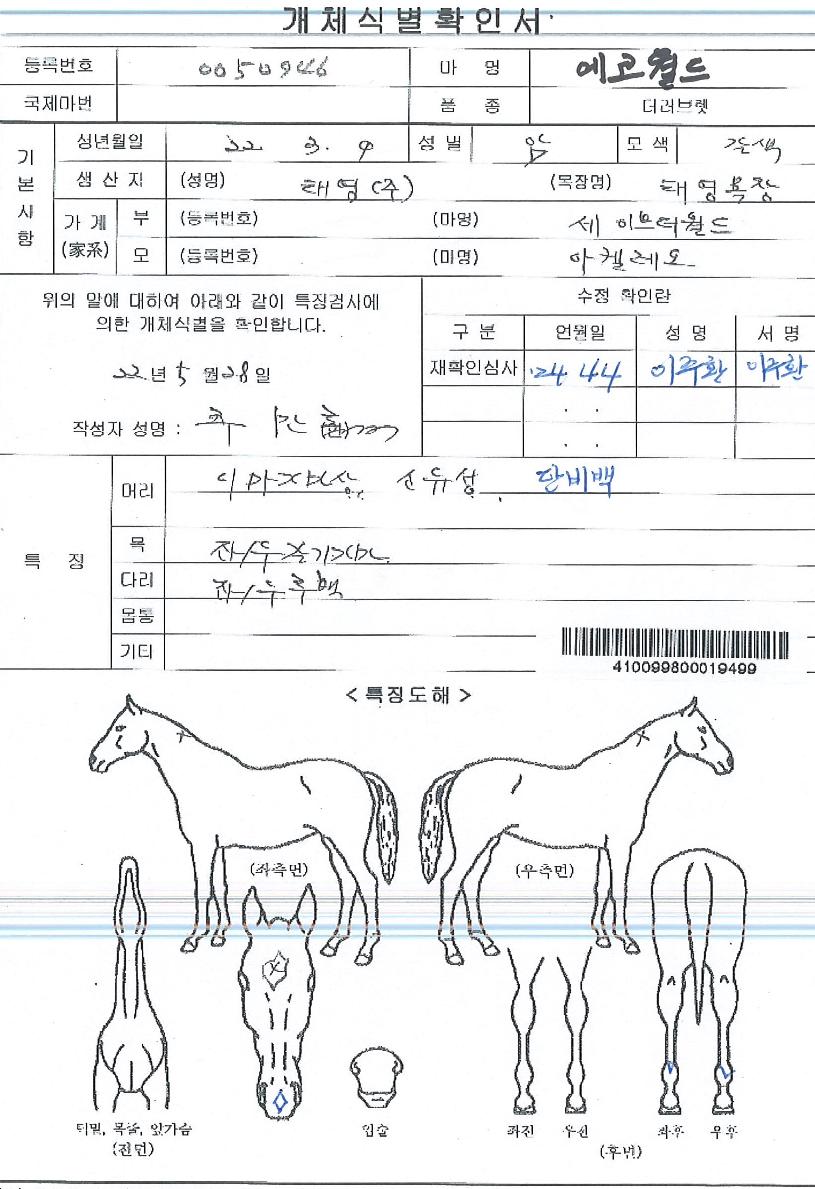 개체식별확인서
등록번호 0050946 마 명 에코월드
국제마번 품 종 더러브렛
기본사항
생년월일 22. 3. 9 성별 암 모색 갈색
생산자 (성명) 태영(주) (목장명) 태영목장
가계(家系) 부 (등록번호) (마명) 세이브더월드
모 (등록번호) (마명) 아켈레오
위의 말에 대하여 아래와 같이 특징검사에
의한 개체식별을 확인합니다.
22년 5월 28일
작성자 성명 :
수정 확인란
구분 연월일 성명 서명
재확인심사 '24 4 4 이주환 이주환
. .
. .
특 징
머리 이마자상 유성 단비백
목 좌/우
다리 좌/우후백
몸통
기타
410099800019499
< 특징도해 >
(좌측면) (우측면)
턱밑, 목줄, 앞가슴 입술 좌전 우전 좌후 우후
(전면) (후면)